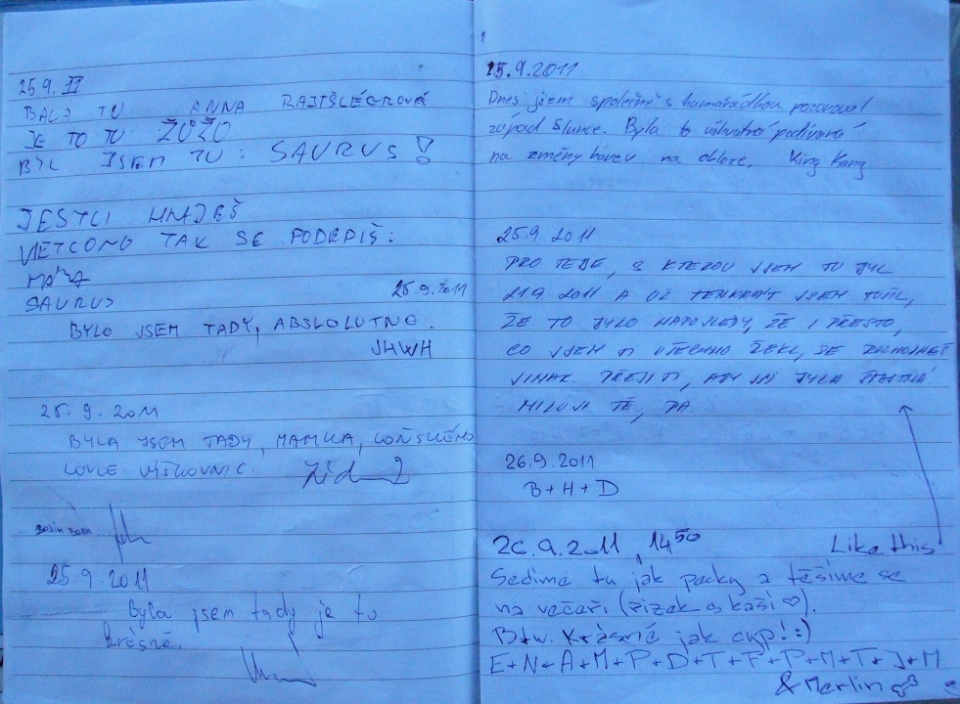 25.9. 11
BYLA TU ANNA
JE TO TU ŽŮŽO
BYL JSEM TU: SAURUS!
JESTLI HRAJEŠ
VIETCONG TAK SE PODEPIŠ:
SAURUS
25.9.2011
BYLO JSEM TADY, ABSOLUTNO.
JHWH
25.9.2011
BYLA JSEM TADY, MAMKA, LOŇSKÉHO
LOVCE
25.9.2011
Byla jsem tady je to
krásné.
25.9.2011
Dnes jsem společně s kamarádkou pozoroval
západ Slunce. Byla to podívaná
na změny barev na obloze. King Kong
25.9.2011
PRO TEBE, S KTEROU JSEM TU BYL
21.9.2011 A UŽ TENKRÁT JSEM TUŠIL,
ŽE TO BYLO NAPOSLEDY, ŽE I PŘESTO,
CO JSEM TI VŠECHNO ŘEKL, SE ROZHODNEŠ
JINAK. PŘEJI TI, ABY JSI BYLA ŠŤASTNÁ!
MILUJI TĚ, PA
26.9.2011
B+H+D
26.9.2011, 14 50
Like this
Sedíme tu jak pecky a těšíme se
na večeři (řízek s kaší ♡).
Btw. Krásné jak cyp! :)
E+N+A+M+P+D+T+F+P+M+T+J+M
& Merlin